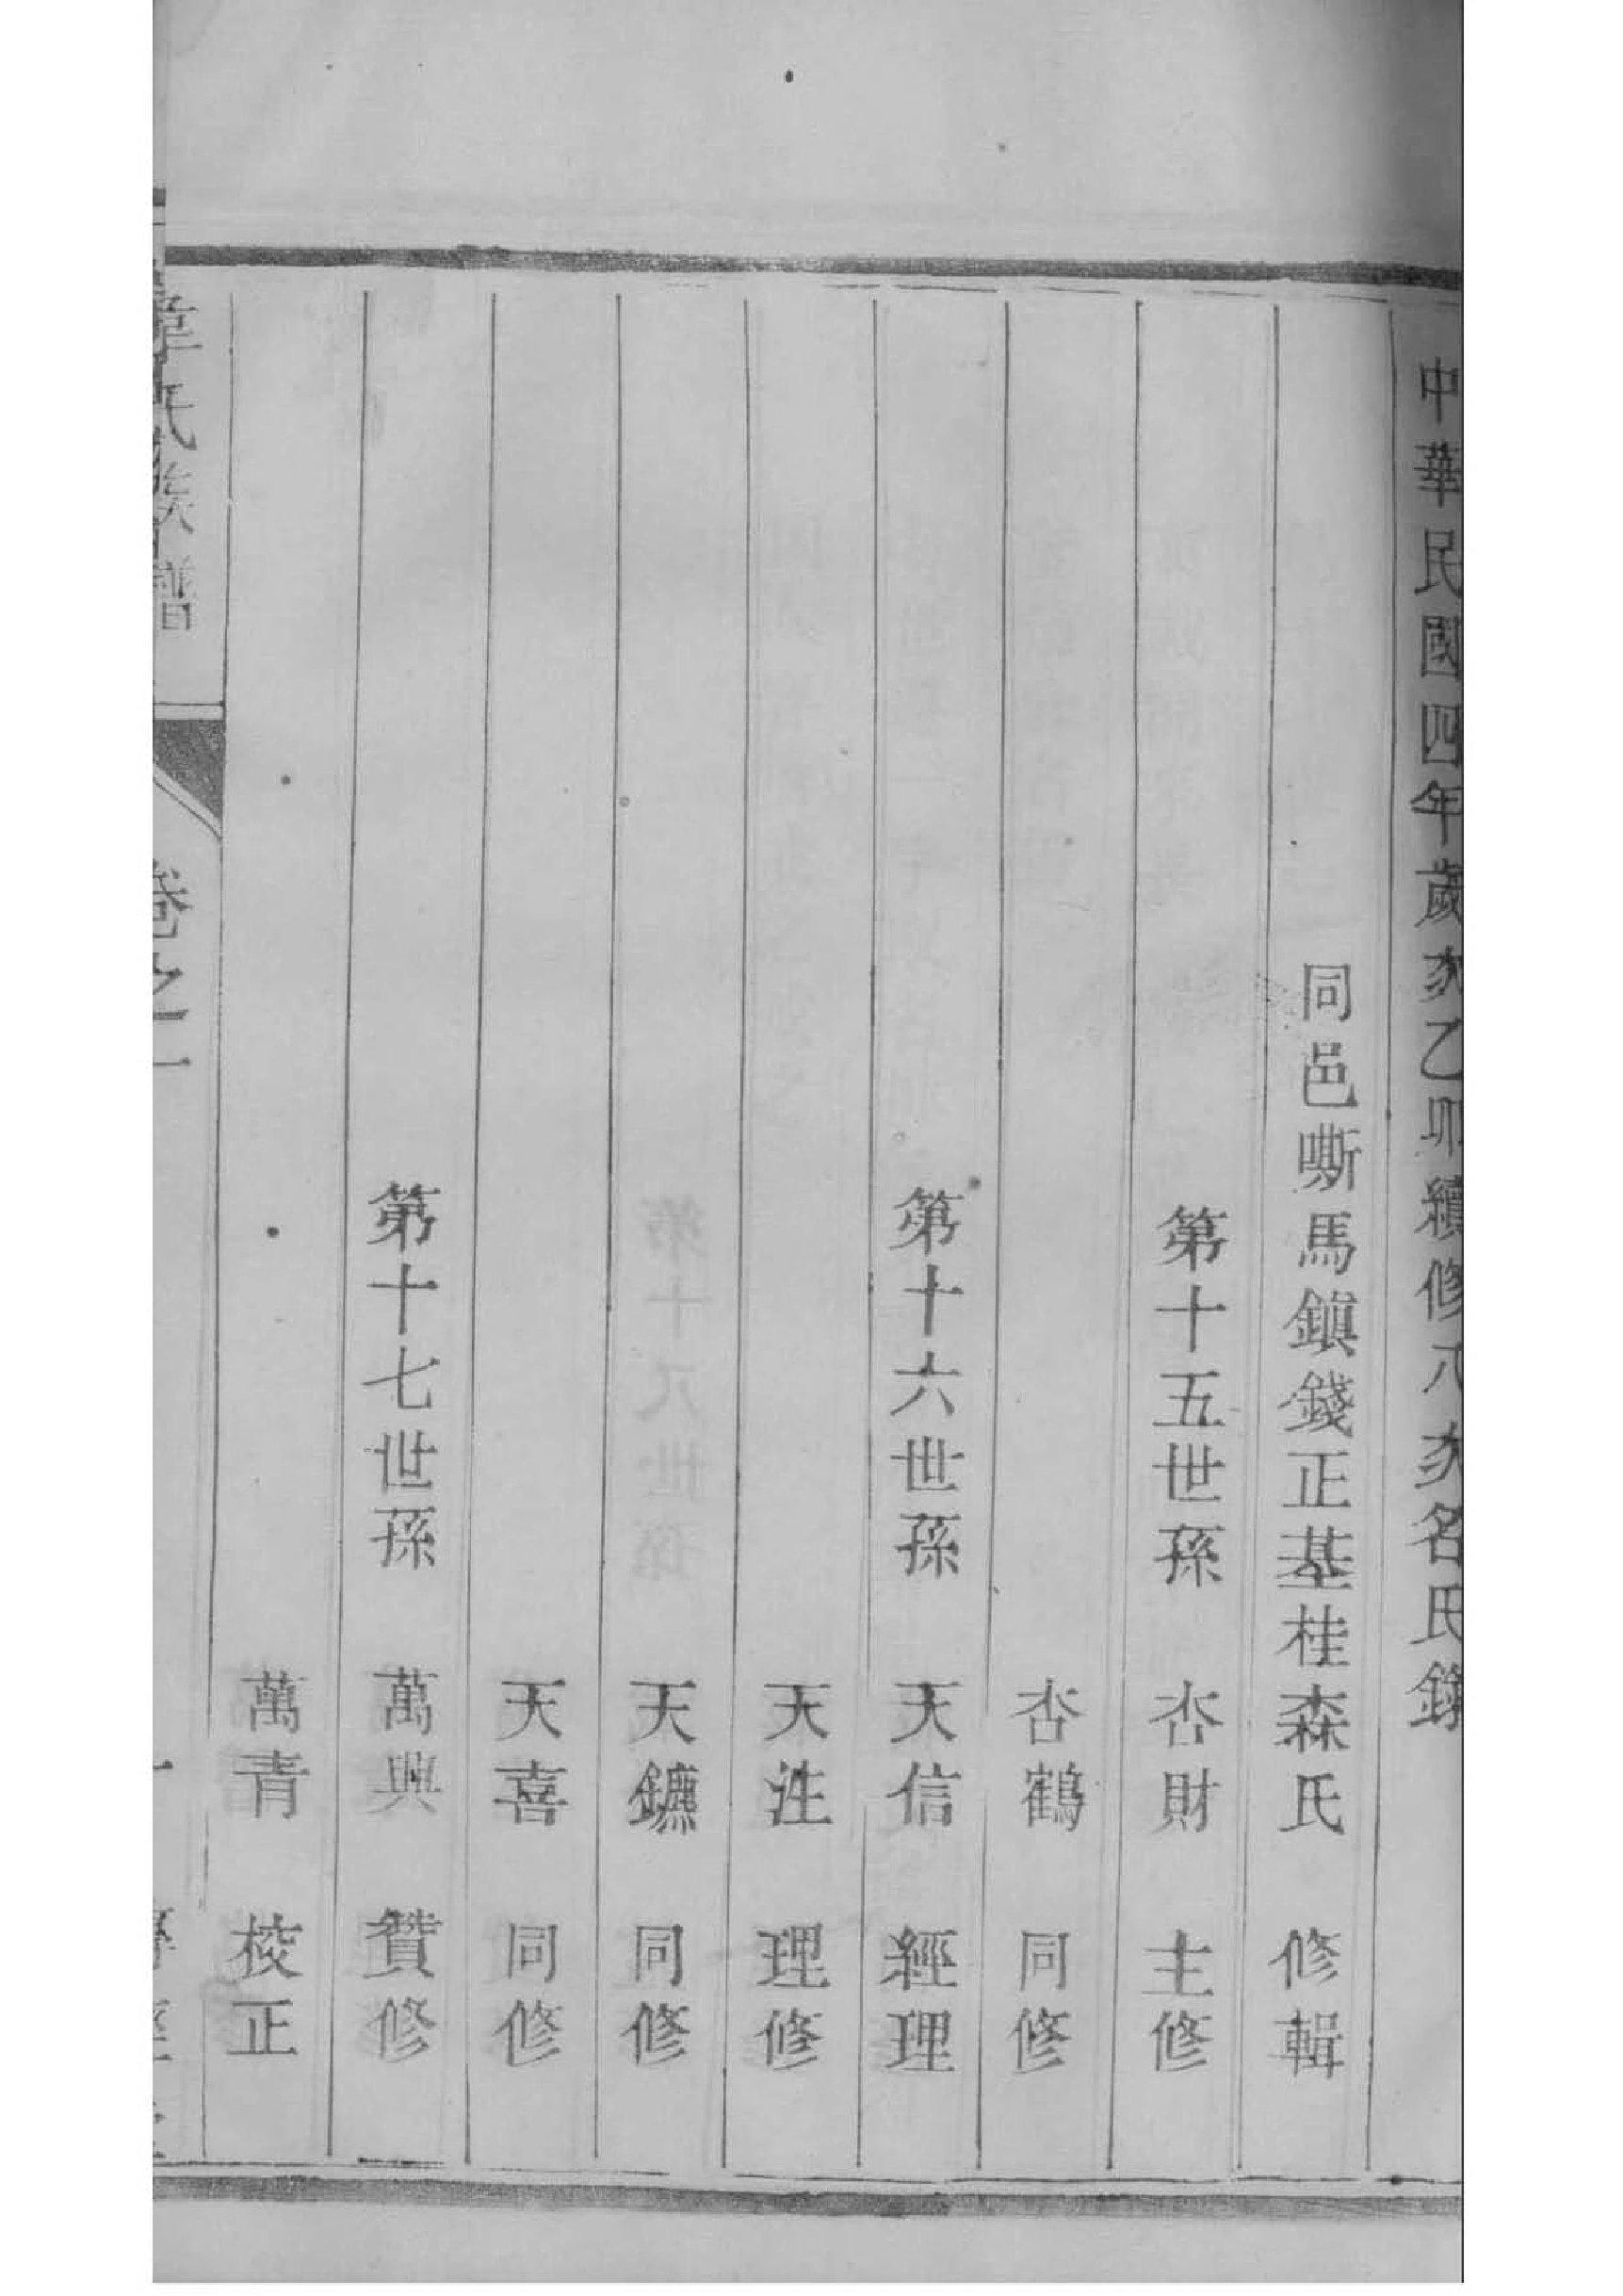 中華民國四年歲次乙卯續修八次名氏錄
同邑嘶馬鎭錢正基桂森氏 修輯
第十五世孫 杏財 主修
杏鶴 同修
第十六世孫 天信 經理
天洼 理修
天鑣 同修
天喜 同修
第十七世孫 萬興 贊修
萬青 校正
章氏族譜 卷之一